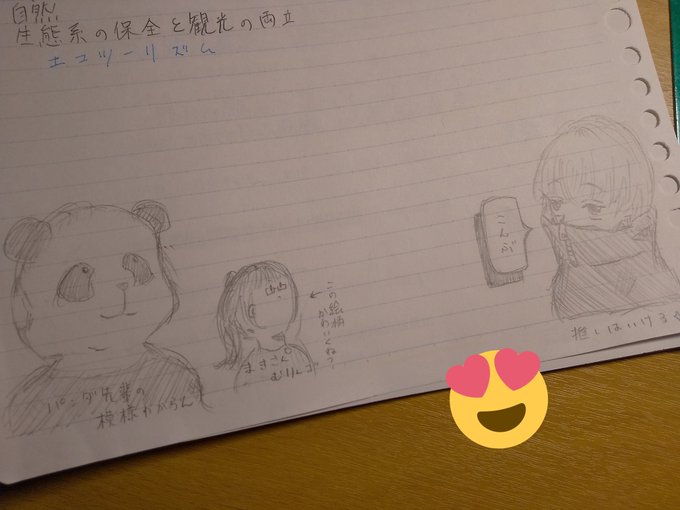 自然
生態系の保全と観光の両立
エコツーリズム
こんぶ
推しはいける☆
この絵柄
かわいくね?
まきさん
むりんご
パンダ先輩の
模様わからん